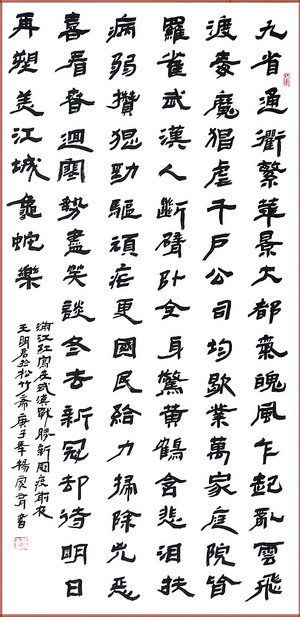 九省通衢繁華景大都氣魄風乍起亂雲飛
渡毒魔猖虐千戶公司均歇業萬家庭院皆
羅雀武漢人斷臂卧全身驚黃鶴含悲泪扶
病弱攢猛勁驅頑疟更國民給力掃除兇惡
喜看春迴寰勢盡笑談冬去新冠却待明日
再塑美江城龜蛇樂
滿江紅寫在武漢戰勝新冠疫前夜
王明君於松竹齋庚子年楊慶育書